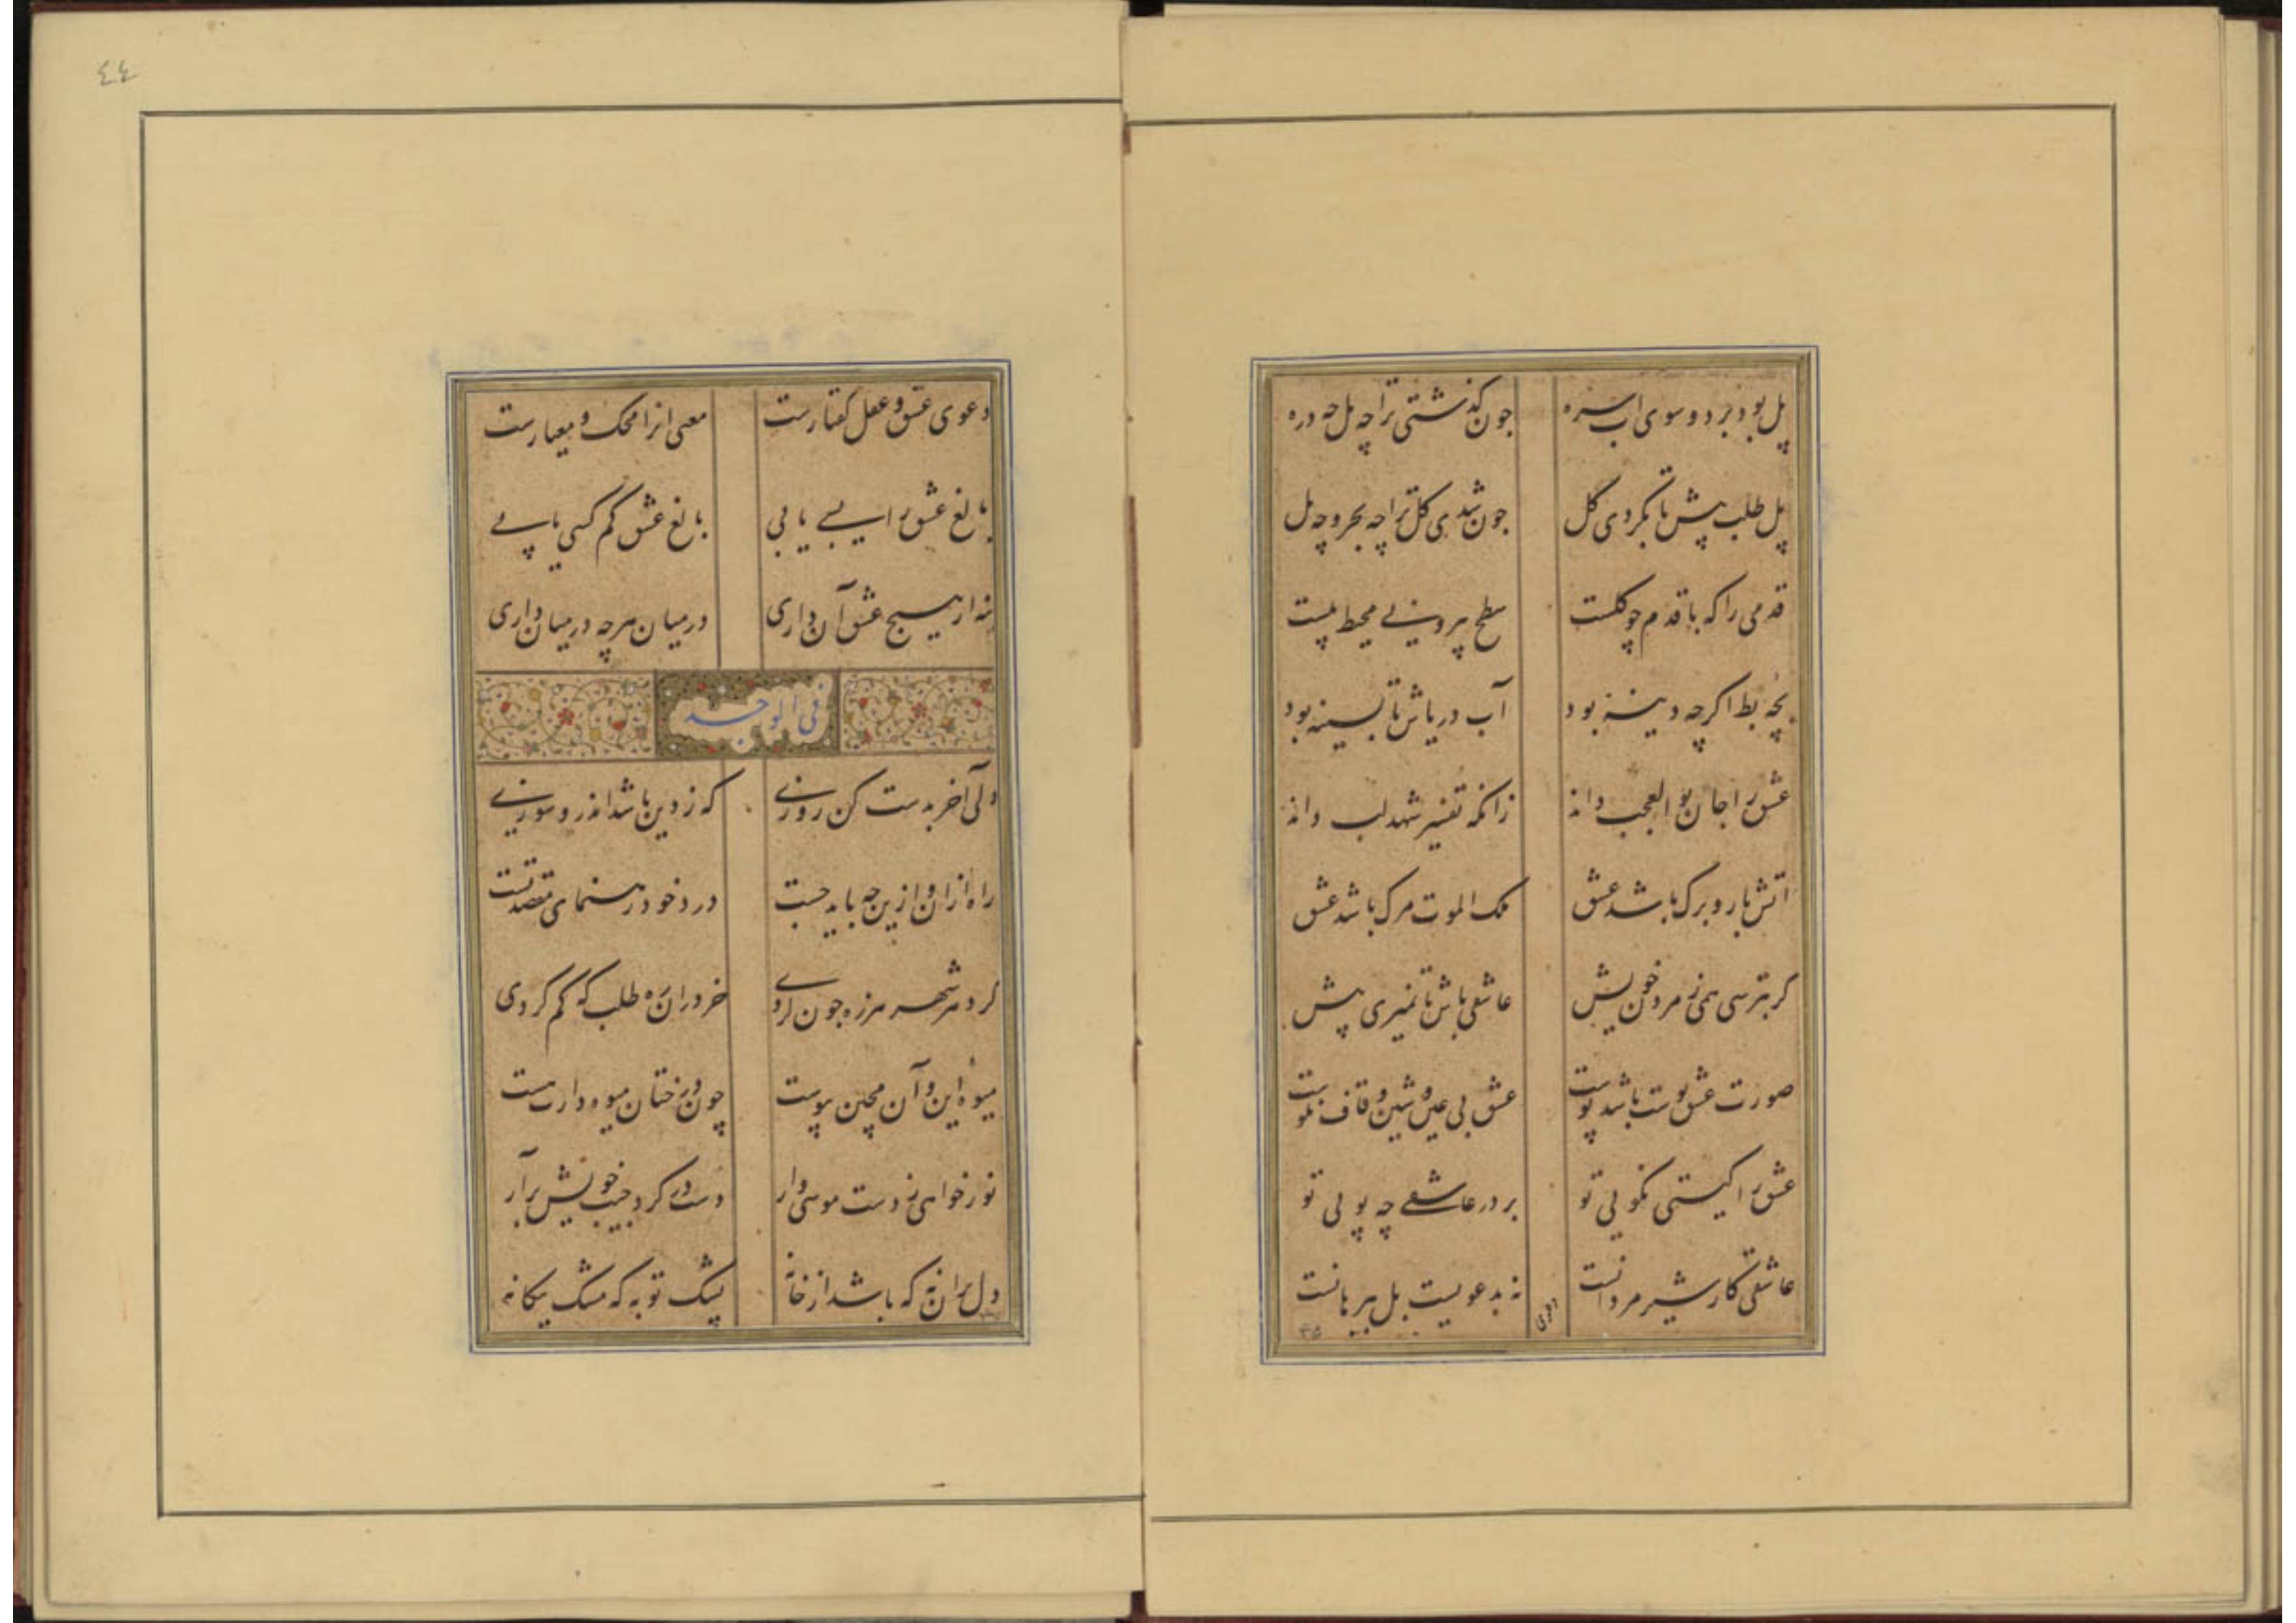 پل بود بر دو سوی آب سره چون گذشتی ترا چه پل چه دره
پل طلب پیش تا نکردی کل چون شدی کل ترا چه بحر و چه پل
قدمی را که با قدم چو گلست سطح بیرونی محیط پلست
بچه بط اگرچه دینه بود آب دریاش تا بسینه بود
عشق را جان بوالعجب داند زانکه تفسیر شهد لب داند
آتش بار و برگ باشد عشق ملک الموت مرگ باشد عشق
گر بترسی همی ز مردن خویش عاشقی باش تا نمیری پیش
صورت عشق پوست باشد پوست عشق بی عین و شین و قاف نکوست
عشق را کیستی نگویی تو بر در عاشقی چه پویی تو
عاشقی کار شیر مردانست نه بدعویست بل ببرهانست
دعوی
٤٤
دعوی عشق و عقل گفتارست معنی آنرا محک و معیارست
بالغ عشق را بسی یابی بالغ عشق کم کسی یابی
نه از هیچ عشق آن داری در میان هرچه در میان داری
فی الوجد
دلی آخر بدست کن روزی که ز دین باشد اندرو سوزی
راه ازان و ازین چه باید جست درد خود رهنمای مقصد تست
گرد هر شهر هرزه چون گردی خر دران ره طلب که گم کردی
میوه این و آن مچین پیوست چون درختان میوه دارت هست
نور خواهی ز دست موسی وار دست در گرد جیب خویش برآر
دل بران نه که باشد از خانه پشک تو به که مشک بیگانه